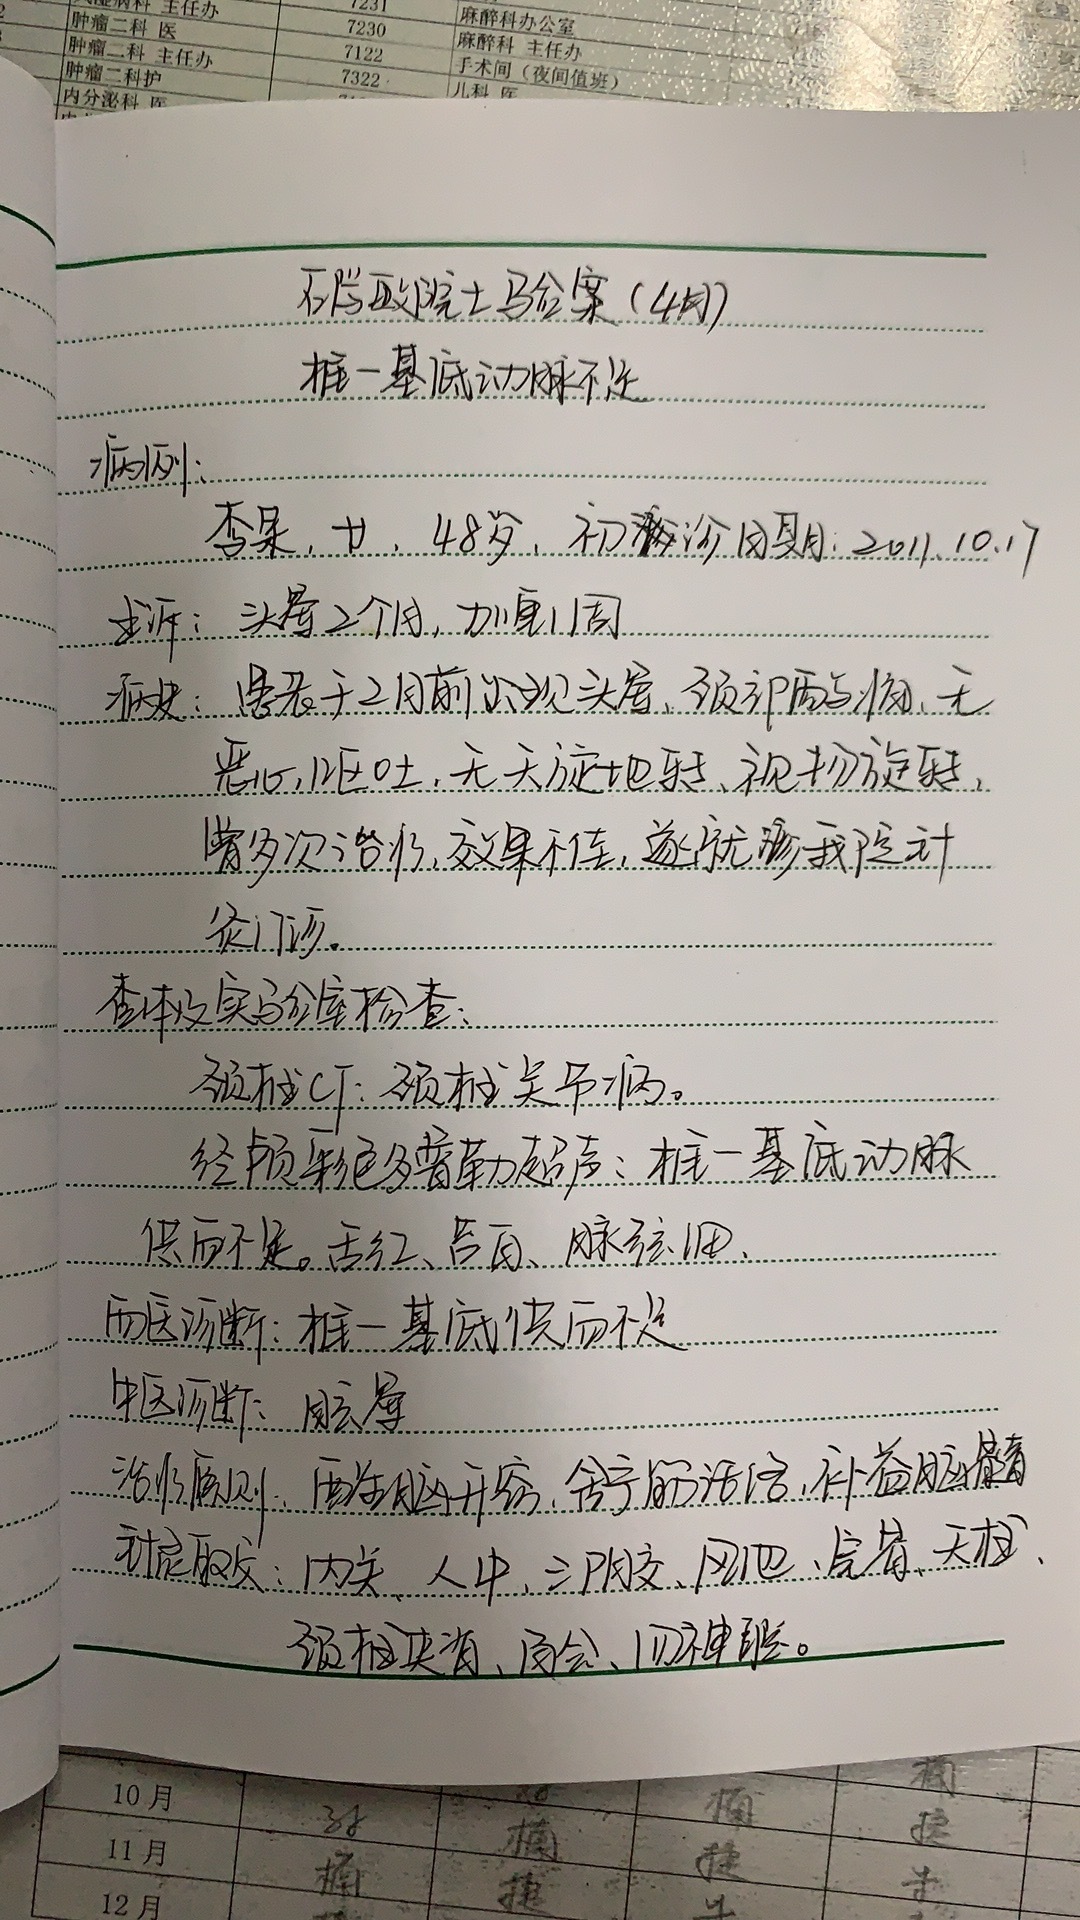 肿瘤二科 医 7230 麻醉科办公室
肿瘤二科 主任办 7122 麻醉科 主任办
肿瘤二科护 7322 手术间（夜间值班）
内分泌科 医 儿科 医
石学敏院士验案（4月）
椎一基底动脉不足
病例：
李某，女，48岁，初诊日期：2011.10.17
主诉：头晕2个月，加重1周
病史：患者于2月前出现头晕、颈部酸痛、无
恶心，呕吐，无天旋地转、视物旋转，
曾多次治疗，效果不佳，遂就诊我院针
灸门诊。
查体及实验室检查：
颈椎CT：颈椎关节病。
经颅彩色多普勒超声：椎一基底动脉
供血不足。舌红、苔白、脉弦细、
西医诊断：椎一基底供血不足
中医诊断：眩晕
治疗原则：醒脑开窍，舒筋活络，补益脑髓
针灸取穴：内关、人中、三阴交、风池、完骨、天柱、
颈椎夹脊、百会、四神聪。
10月
11月
12月